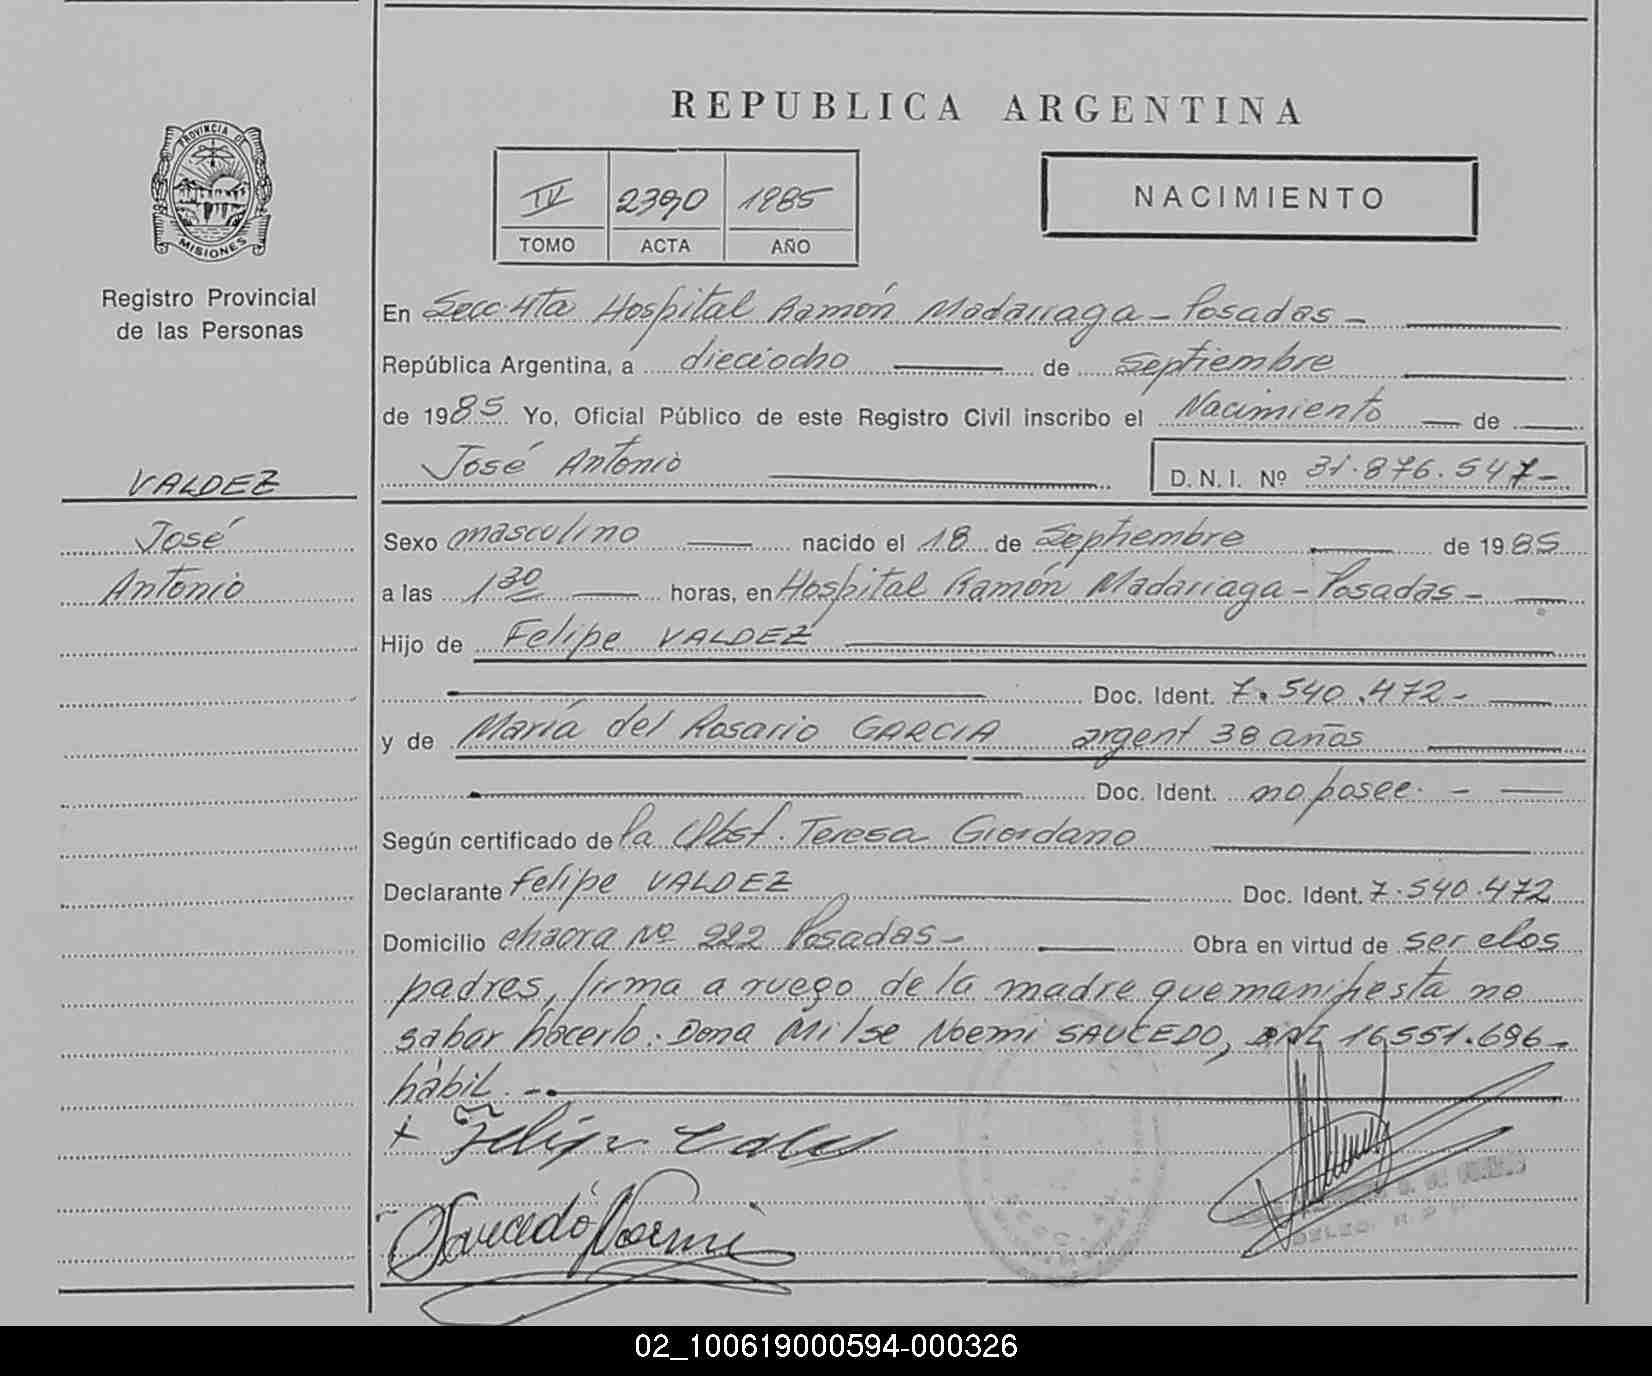 REPUBLICA ARGENTINA
PROVINCIA DE
MISIONES
Registro Provincial
de las Personas
IV 2390 1985
TOMO ACTA AÑO
NACIMIENTO
En Secc. 4ta Hospital Ramón Madariaga - Posadas -
República Argentina, a dieciocho de Septiembre
de 1985 Yo, Oficial Público de este Registro Civil inscribo el Nacimiento de
José Antonio D.N.I. Nº 31.876.547-
VALDEZ
José
Antonio
Sexo masculino nacido el 18 de Septiembre de 1985
a las 1 30 horas, en Hospital Ramón Madariaga - Posadas -
Hijo de Felipe VALDEZ
Doc. Ident. 7.540.472-
y de María del Rosario GARCIA argent 38 años
Doc. Ident. no posee. -
Según certificado de la Obst. Teresa Giordano
Declarante Felipe VALDEZ Doc. Ident. 7.540.472
Domicilio chacra Nº 222 Posadas - Obra en virtud de ser elos
padres, firma a ruego de la madre que manifiesta no
sabar hacerlo. Dona Milse Noemi SAUCEDO, DNI 16551.696-
hábil. -
+ Felipe Valdez
Saucedo Noemi
02_100619000594-000326